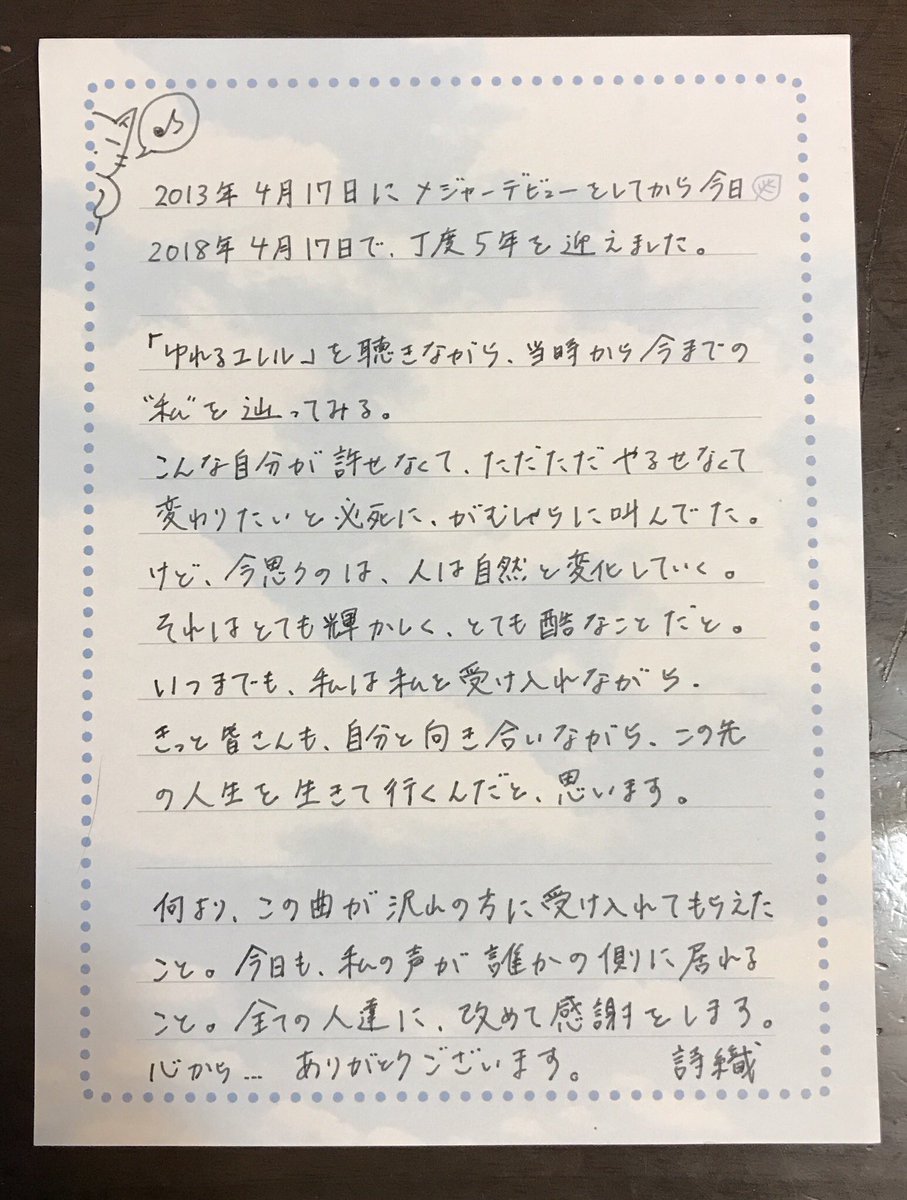 2013年4月17日にメジャーデビューをしてから今日
2018年4月17日で、丁度5年を迎えました。
「ゆれるユレル」を聴きながら、当時から今までの
"私"を辿ってみる。
こんな自分が許せなくて、ただただやるせなくて
変わりたいと必死に、がむしゃらに叫んでた。
けど、今思うのは、人は自然と変化していく。
それはとても輝かしく、とても酷なことだと。
いつまでも、私は私を受け入れながら.
きっと皆さんも、自分と向き合いながら、この先
の人生を生きて行くんだと、思います。
何より、この曲が沢山の方に受け入れてもらえた
こと。今日も、私の声が誰かの側に居れる
こと。全ての人達に、改めて感謝をします。
心から… ありがとうございます。 詩織